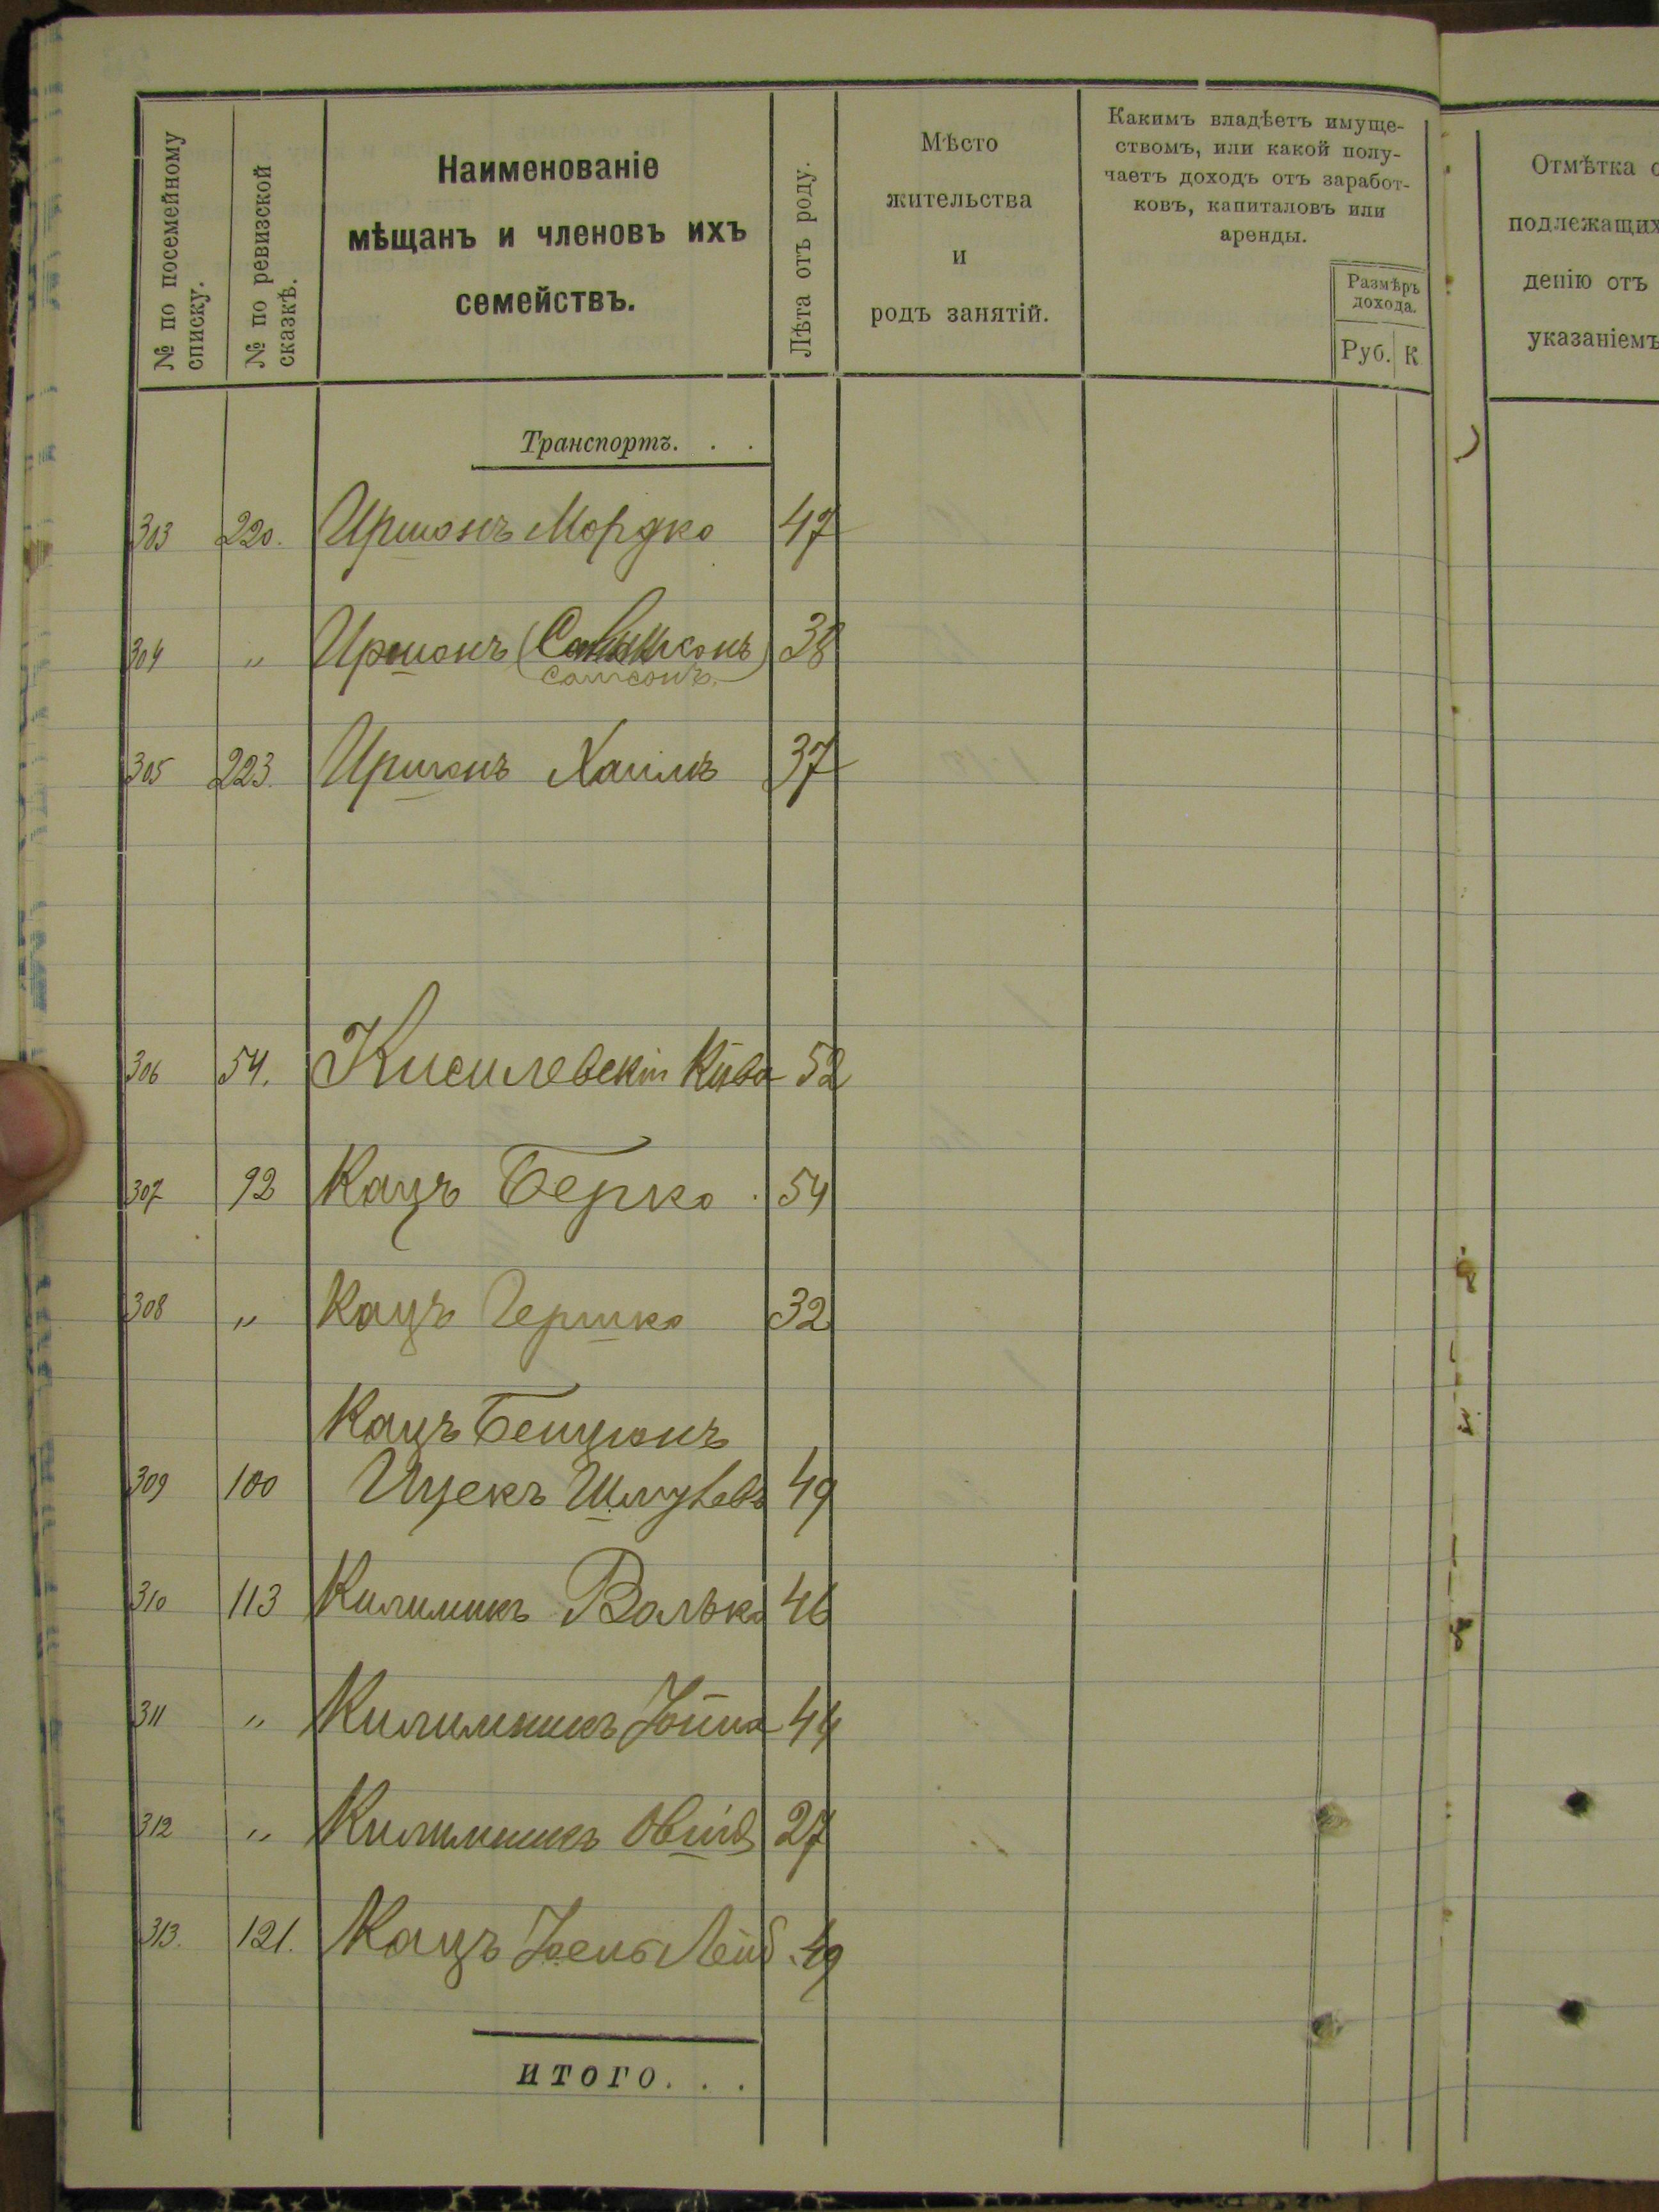 № по посемейному
списку.
№ по ревизской
сказкѣ.
Наименованіе
мѣщанъ и членовъ ихъ
семействъ.
Лѣта отъ роду.
Мѣсто
жительства
и
родъ занятій.
Какимъ владѣетъ имуще-
ствомъ, или какой полу-
чаетъ доходъ отъ заработ-
ковъ, капиталовъ или
аренды.
Размѣръ
дохода.
Руб. К
Отмѣтка о
подлежащих
денію отъ
указаніемъ
Транспортъ. . .
303 220. Иршонъ Мордко 47
304 " Иршонъ ( ) 38
Самсонъ.
305 223. Иршонъ Хаимъ 37
306 54. Кисилевскій Кива 52
307 92 Кацъ Берко. 54
308 " Кацъ Гершко 32
Кацъ Бенционъ
309 100 Ицекъ 49
310 113 Килимникъ Волько 46
311 " Килимникъ 44
312 " Килимникъ Овшій 27
313. 121. Кацъ Лейб. 49
ИТОГО. . .